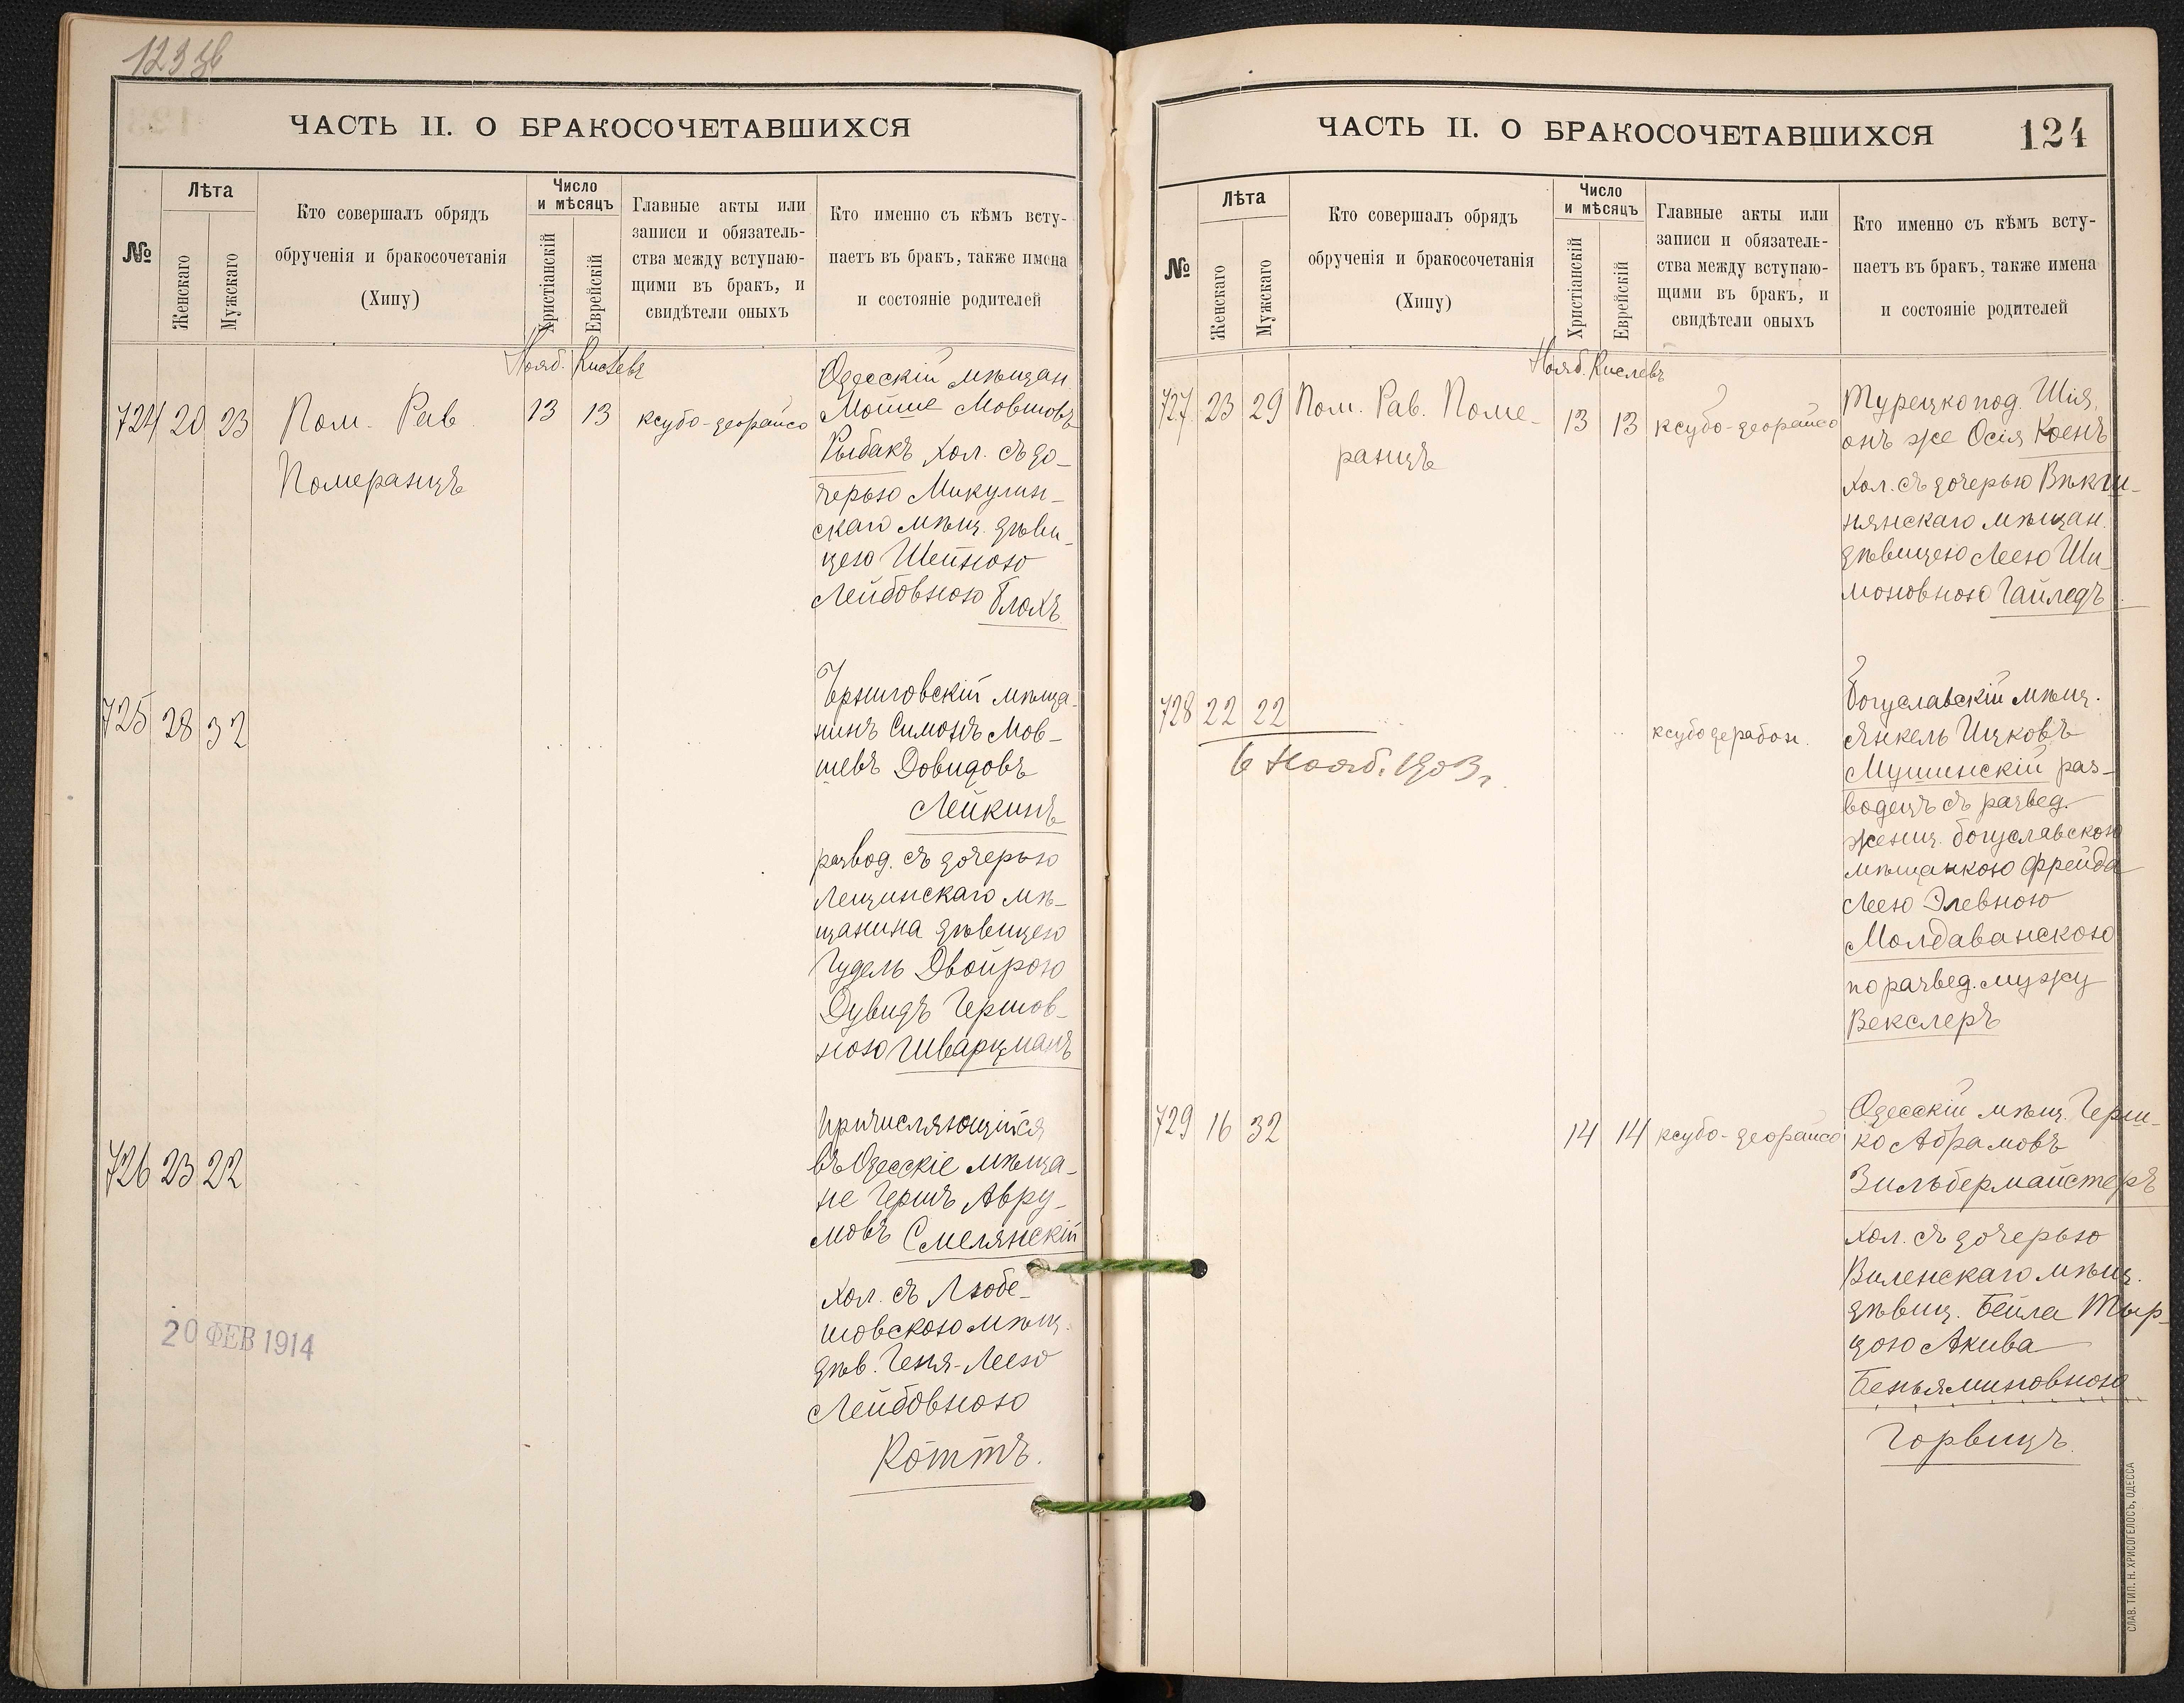 ЧАСТЬ II. О БРАКОСОЧЕТАВШИХСЯ
№
Лѣта
Женскаго
Мужскаго
Кто совершалъ обрядъ
обрученія и бракосочетанія
(Хипу)
Число
и мѣсяцъ
Христіанскій
Еврейскій
Главные акты или
записи и обязатель-
ства между вступаю-
щими въ бракъ, и
свидѣтели оныхъ
Кто именно съ кѣмъ всту-
паетъ въ бракъ, также имена
и состояніе родителей
Нояб. Кислевъ
724 20 23 Пом. Рав
Померанцъ
13 13 ксубо-деорайсо
Одесскій мѣщан.
Мойше Мовшовъ
Рыбакъ хол. съ до-
черью Микулин-
скаго мѣщ. дѣви-
цею Шейною
Лейбовною Блохъ
725 28 32
Черниговскій мѣща-
нинъ Симонъ Мов-
шевъ Довидовъ
Лейкинъ
развод. съ дочерью
Лещинскаго мѣ-
щанина дѣвицею
Гудель Двойрою
Дувидъ Гершов-
ною Шварцманъ
726 23 22
Причисляющійся
въ Одесскіе мѣща-
не Гершъ Авру-
мовъ Смелянскій
хол. съ Любе-
шовскою мѣщ.
дѣв. Геня-Леею
Лейбовною
Коттъ.
20 ФЕВ 1914
ЧАСТЬ II. О БРАКОСОЧЕТАВШИХСЯ 124
№
Лѣта
Женскаго
Мужскаго
Кто совершалъ обрядъ
обрученія и бракосочетанія
(Хипу)
Число
и мѣсяцъ
Христіанскій
Еврейскій
Главные акты или
записи и обязатель-
ства между вступаю-
щими въ бракъ, и
свидѣтели оныхъ
Кто именно съ кѣмъ всту-
паетъ въ бракъ, также имена
и состояніе родителей
Нояб. Кислевъ
727 23 29 Пом. Рав. Поме-
ранцъ
13 13 ксубо-деорайсо
Турецкопод. Шія,
онъ же Осія Коенъ
хол. съ дочерью
нянскаго мѣщан.
дѣвицею Леею Ши-
моновною Гайледъ
728 22 22
6 Нояб. 1903 г.
ксубо дерабон.
Богуславскій мѣщ.
Янкель Ицковъ
Мушинскій раз-
водецъ съ развед.
женщ. богуславскою
мѣщанкою Фрейда
Леею Элевною
Молдаванскою
по развед. мужу
Векслеръ
729 16 32
14 14 ксубо-деорайсо
Одесскій мѣщ. Герш-
ко Абрамовъ
Зильбермайстеръ
хол. съ дочерью
Виленскаго мѣщ.
дѣвиц. Бейла Тыр-
цою Акива
Беньяминовною
Горвицъ.
СЛАВ. ТИП. Н. ХРИСОГЕЛОСЪ, ОДЕССА